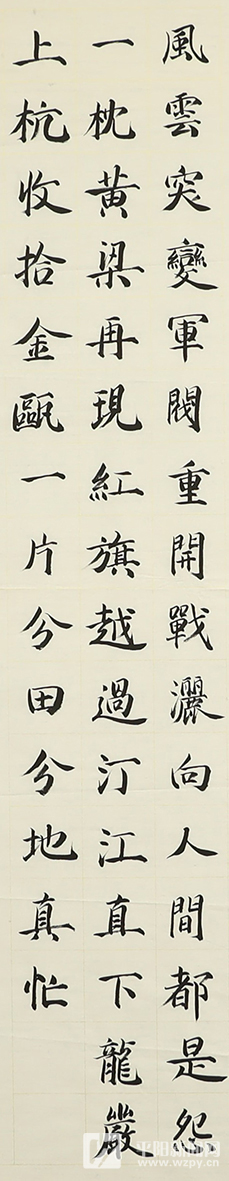 風雲突變軍閥重開戰灑向人間都是怨
一枕黃梁再現紅旗越過汀江直下龍巖
上杭收拾金甌一片分田分地真忙
平阳新闻网
www.wzpy.cn